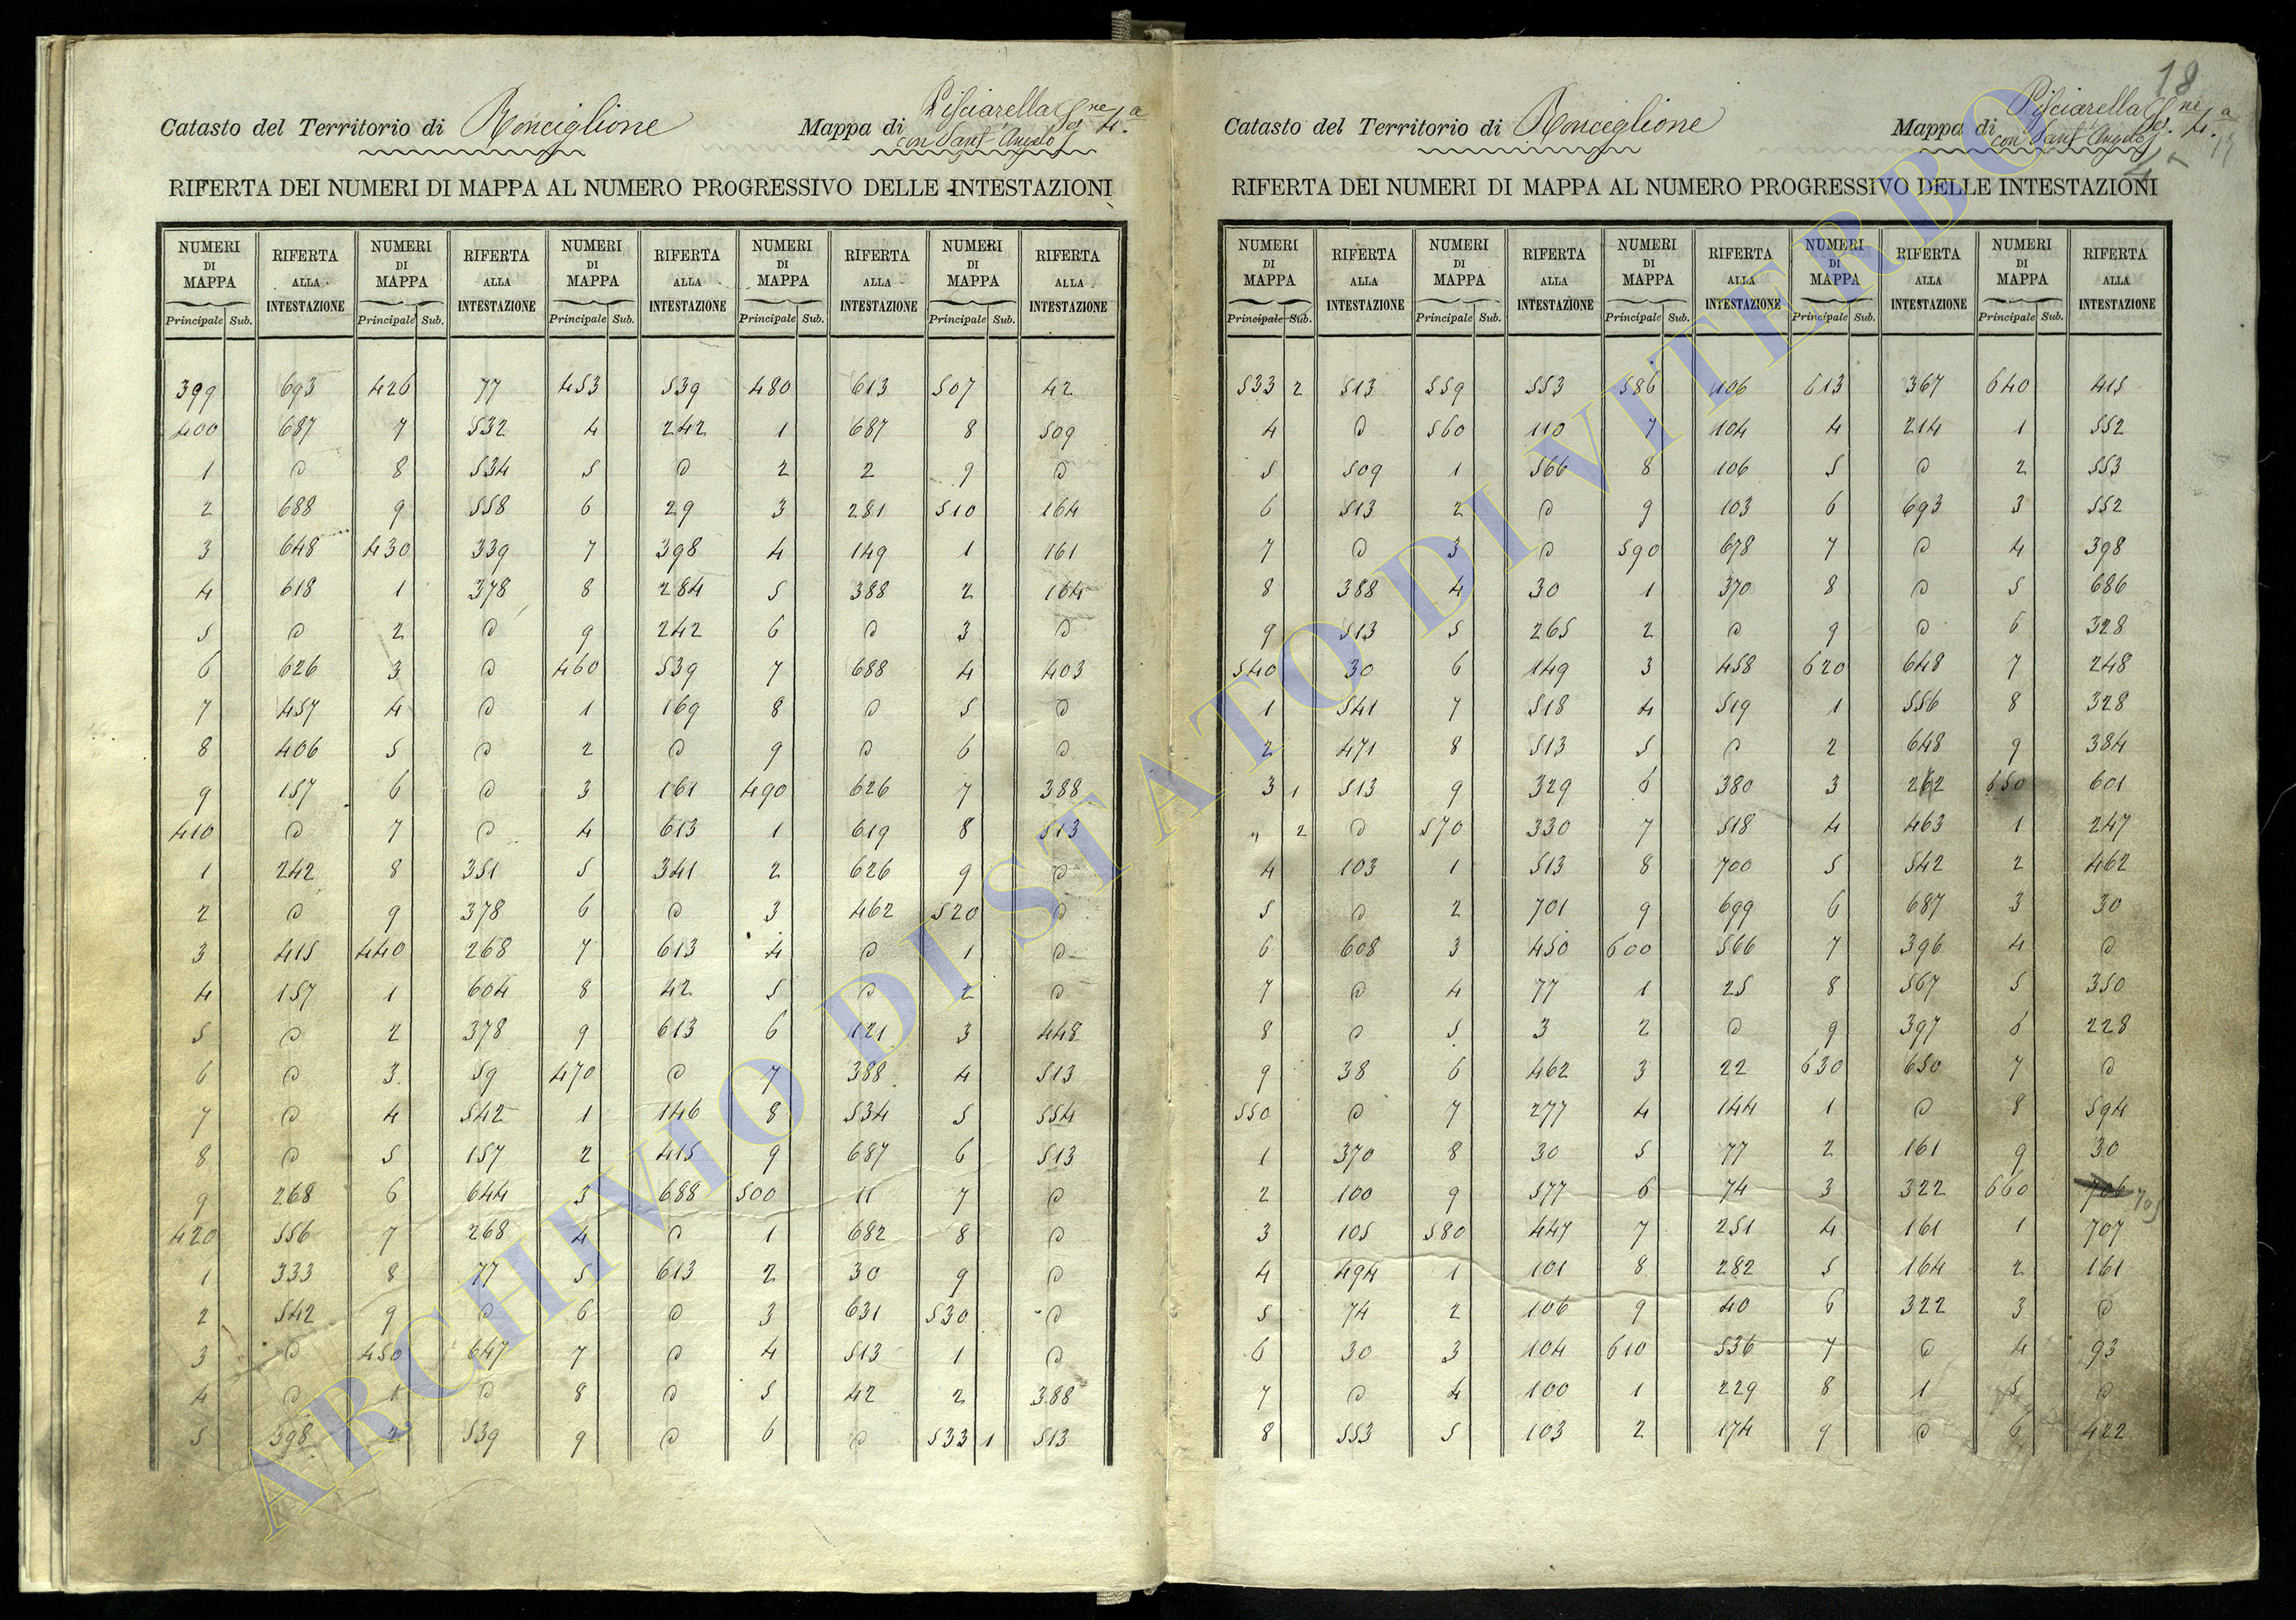 18
Catasto del Territorio di Ronciglione Mappa di Pisciarella con Sant'Angelo Sne 4a
RIFERTA DEI NUMERI DI MAPPA AL NUMERO PROGRESSIVO DELLE INTESTAZIONI
NUMERI DI MAPPA RIFERTA ALLA INTESTAZIONE NUMERI DI MAPPA RIFERTA ALLA INTESTAZIONE NUMERI DI MAPPA RIFERTA ALLA INTESTAZIONE NUMERI DI MAPPA RIFERTA ALLA INTESTAZIONE NUMERI DI MAPPA RIFERTA ALLA INTESTAZIONE
Principale Sub. Principale Sub. Principale Sub. Principale Sub. Principale Sub.
399 693 426 77 453 539 480 613 507 42
400 687 7 532 4 242 1 687 8 509
1 @ 8 534 5 @ 2 2 9 @
2 688 9 558 6 29 3 281 510 164
3 648 430 339 7 398 4 149 1 161
4 618 1 378 8 284 5 388 2 164
5 @ 2 @ 9 242 6 @ 3 @
6 626 3 @ 460 539 7 688 4 403
7 457 4 @ 1 169 8 @ 5 @
8 406 5 @ 2 @ 9 @ 6 @
9 157 6 @ 3 161 490 626 7 388
410 @ 7 @ 4 613 1 619 8 513
1 242 8 351 5 341 2 626 9 @
2 @ 9 378 6 @ 3 462 520 @
3 415 440 268 7 613 4 @ 1 @
4 157 1 604 8 42 5 @ 2 @
5 @ 2 378 9 613 6 121 3 448
6 @ 3 59 470 @ 7 388 4 513
7 @ 4 542 1 146 8 534 5 554
8 @ 5 157 2 415 9 687 6 513
9 268 6 644 3 688 500 11 7 @
420 556 7 268 4 @ 1 682 8 @
1 333 8 77 5 613 2 30 9 @
2 542 9 @ 6 @ 3 631 530 @
3 @ 450 647 7 @ 4 513 1 @
4 @ 1 @ 8 @ 5 42 2 388
5 398 2 539 9 @ 6 @ 533 1 513
Catasto del Territorio di Ronciglione Mappa di Pisciarella con Sant'Angelo Sne 4a
RIFERTA DEI NUMERI DI MAPPA AL NUMERO PROGRESSIVO DELLE INTESTAZIONI
NUMERI DI MAPPA RIFERTA ALLA INTESTAZIONE NUMERI DI MAPPA RIFERTA ALLA INTESTAZIONE NUMERI DI MAPPA RIFERTA ALLA INTESTAZIONE NUMERI DI MAPPA RIFERTA ALLA INTESTAZIONE NUMERI DI MAPPA RIFERTA ALLA INTESTAZIONE
Principale Sub. Principale Sub. Principale Sub. Principale Sub. Principale Sub.
533 2 513 559 553 586 106 613 367 640 415
4 @ 560 110 7 104 4 214 1 552
5 509 1 566 8 106 5 @ 2 553
6 513 2 @ 9 103 6 693 3 552
7 @ 3 @ 590 678 7 @ 4 398
8 388 4 30 1 370 8 @ 5 686
9 513 5 265 2 @ 9 @ 6 328
540 30 6 149 3 458 620 648 7 248
1 541 7 518 4 519 1 556 8 328
2 471 8 513 5 @ 2 648 9 384
3 1 513 9 329 6 380 3 262 650 601
" 2 @ 570 330 7 518 4 463 1 247
4 103 1 513 8 700 5 542 2 462
5 @ 2 701 9 699 6 687 3 30
6 608 3 450 600 566 7 396 4 @
7 @ 4 77 1 25 8 567 5 350
8 @ 5 3 2 @ 9 397 6 228
9 38 6 462 3 22 630 650 7 @
550 @ 7 277 4 144 1 @ 8 594
1 370 8 30 5 77 2 161 9 30
2 100 9 577 6 74 3 322 660 706 705
3 105 580 447 7 251 4 161 1 707
4 494 1 101 8 282 5 164 2 161
5 74 2 106 9 40 6 322 3 @
6 30 3 104 610 536 7 @ 4 93
7 @ 4 100 1 229 8 1 5 @
8 553 5 103 2 174 9 @ 6 422
ARCHIVIO DI STATO DI VITERBO